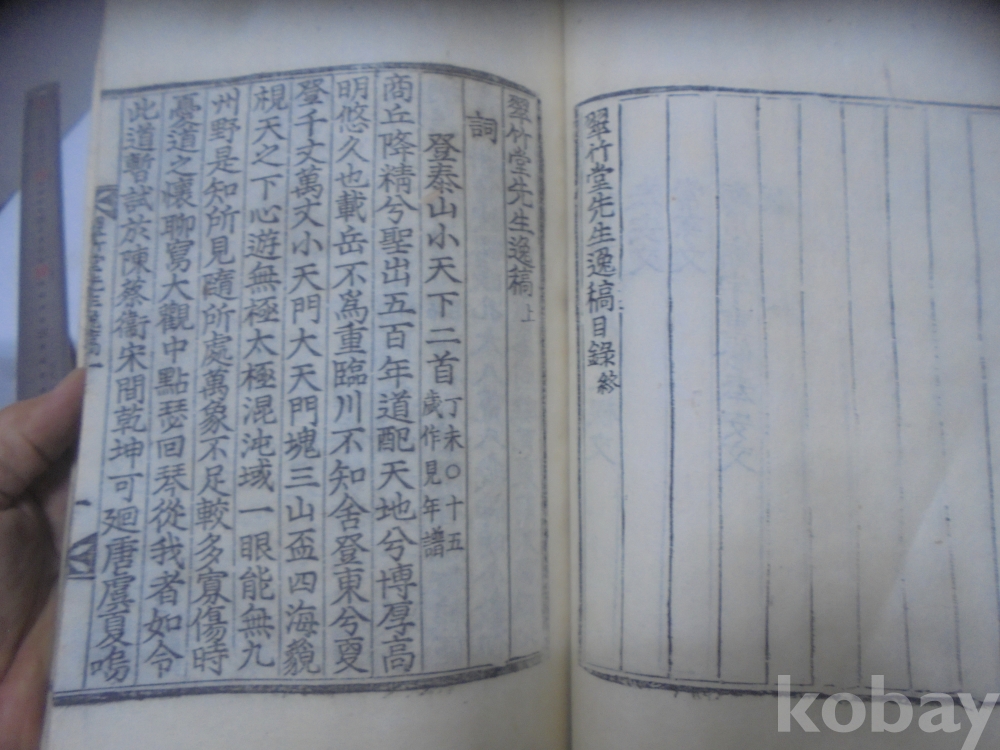 翠竹堂先生逸稿目錄終
翠竹堂先生逸稿上
詞
登泰山小天下二首丁未○十五歲作見年譜
商丘降精兮聖出五百年道配天地兮博厚高
明悠久也載岳不爲重臨川不知舍登東兮夏
登千丈萬丈小天門大天門塊三山盃四海藐
視天之下心遊無極太極混沌域一眼能無九
州野是知所見隨所處萬象不足較多寡傷時
憂道之懷聊寫大觀中點瑟回琴從我者如令
此道暫試於陳蔡衛宋間乾坤可廻唐虞夏嗚
kobay